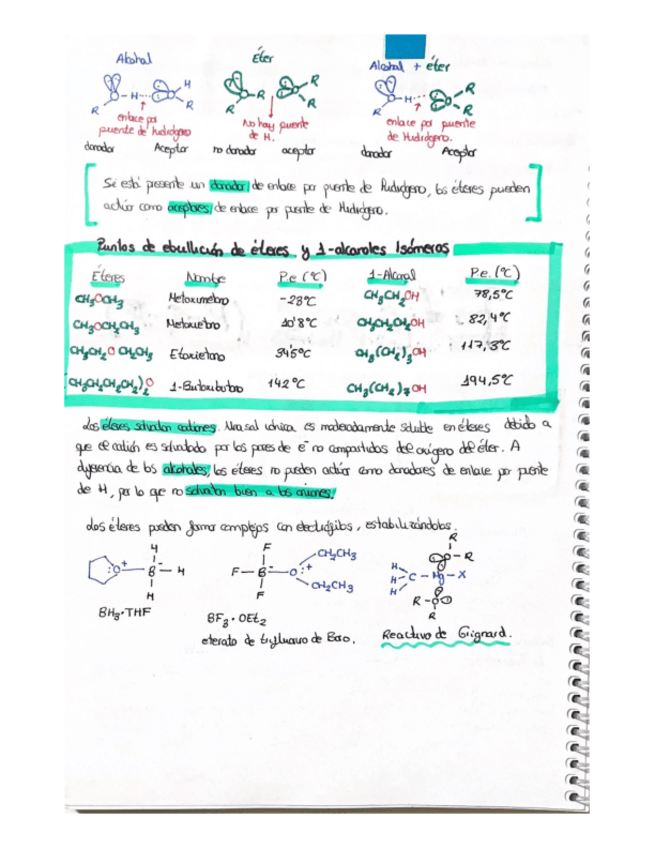 Alcohol Éter Alcohol + éter
R O H O H R O R O R R O H O R R
enlace por puente de hidrógeno No hay puente de H. enlace por puente de Hidrógeno.
donador Aceptor no donador aceptor donador Aceptor
Si está presente un donador de enlace por puente de hidrógeno, los éteres pueden
actúar como aceptores de enlace por puente de Hidrógeno.
Puntos de ebullición de éteres y 1-alcanoles Isómeros
Éteres Nombre P.e (°C) 1-Alcanol P.e. (°C)
CH3OCH3 Metoximetano -23°C CH3CH2OH 78,5°C
CH3OCH2CH3 10'8°C CH3CH2CH2OH 82,4°C
CH3CH2OCH2CH3 Etoxietano 34'5°C CH3(CH2)3OH 117,3°C
(CH3CH2CH2CH2)2O 1-Butoxibutano 142°C CH3(CH2)7OH 194,5°C
Los éteres solvatan cationes. Una sal iónica es moderadamente soluble en éteres debido a
que el catión es solvatado por los pares de e⁻ no compartidos del oxígeno del éter. A
diferencia de los alcoholes, los éteres no pueden actúar como donadores de enlace por puente
de H, por lo que no solvatan bien a los aniones.
Los éteres pueden formar complejos con electrófilos, estabilizándolos.
O+ B- H H H F B- F F O:+ CH2CH3 CH2CH3 H H H C Mg X R O R R O R
BH3·THF BF3·OEt2
eterato de trifluoruro de Boro. Reactivo de Grignard.